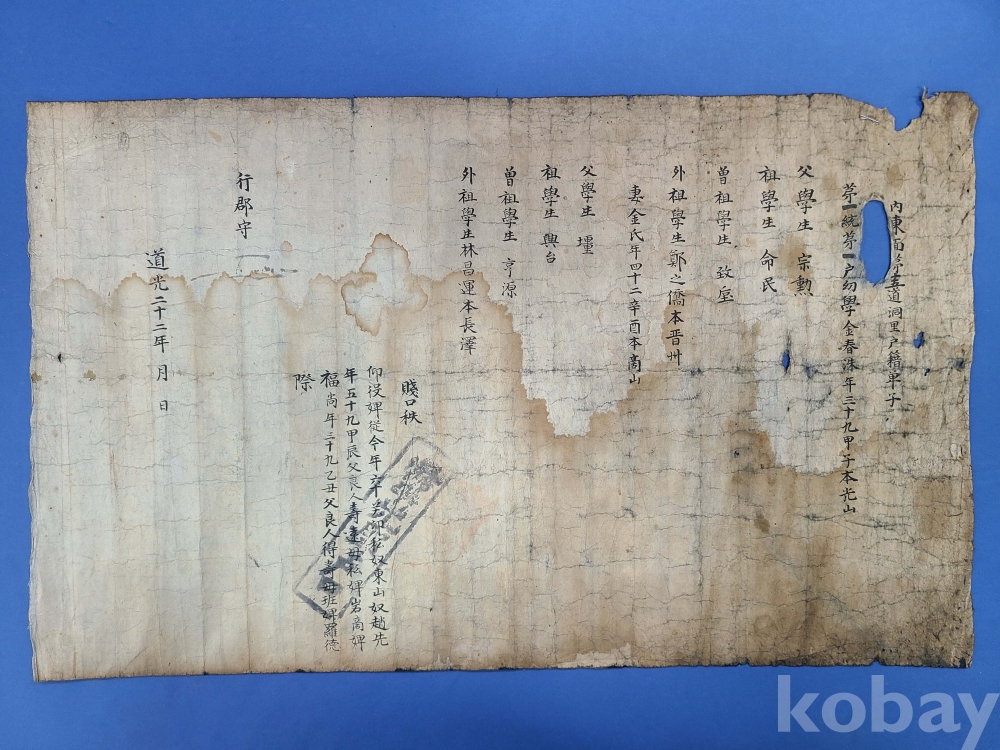 內東面 道洞里户籍單子
第一統第一户幼學金春洙年三十九甲子本光山
父學生 宗勲
祖學生 命民
曾祖學生 致
外祖學生鄭之僑本晋州
妻金氏年四十二辛酉本高山
父學生 壃
祖學生 興台
曾祖學生 亨源
外祖學生林昌運本長澤
賤口秩
仰役婢從今年六十 卯 私奴東山奴趙先
年五十九甲辰父良人壽 母私婢 婢
福尚年三十九乙丑父良人得 母班婢羅德
際
行郡守
道光二十二年 月 日
kobay